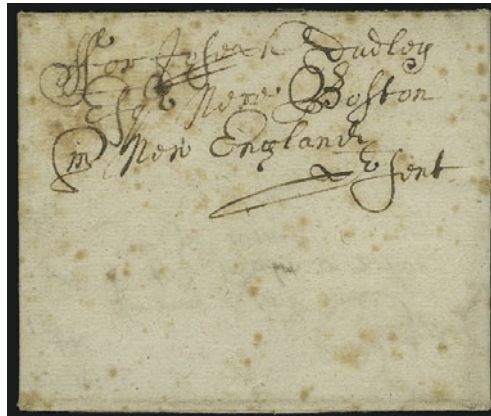 ffor Joseph Dudley
Esqr Nere Boston
in New England
sent